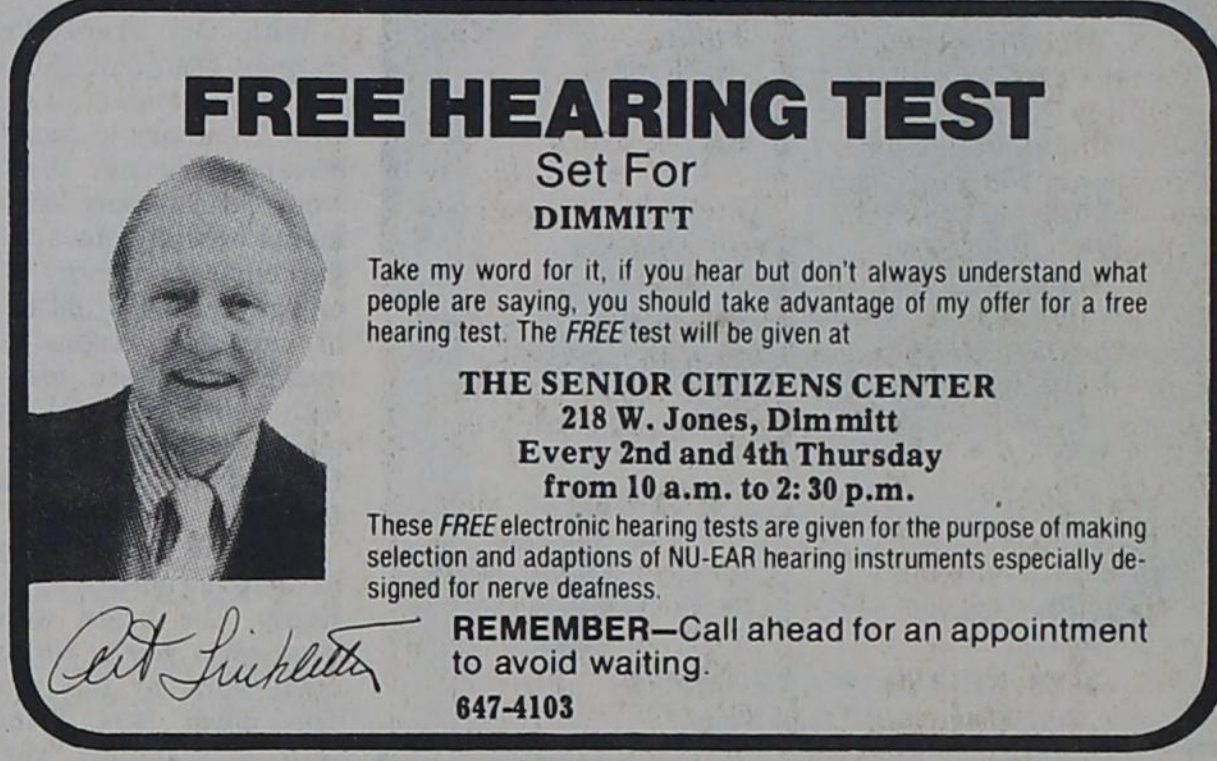 FREE HEARING TEST
Set For
DIMMITT
Take my word for it, if you hear but don't always understand what
people are saying, you should take advantage of my offer for a free
hearing test. The FREE test will be given at
THE SENIOR CITIZENS CENTER
218 W. Jones, Dimmitt
Every 2nd and 4th Thursday
from 10 a.m. to 2:30 p.m.
These FREE electronic hearing tests are given for the purpose of making
selection and adaptions of NU-EAR hearing instruments especially de-
signed for nerve deafness.
Art Linkletter
REMEMBER—Call ahead for an appointment
to avoid waiting.
647-4103